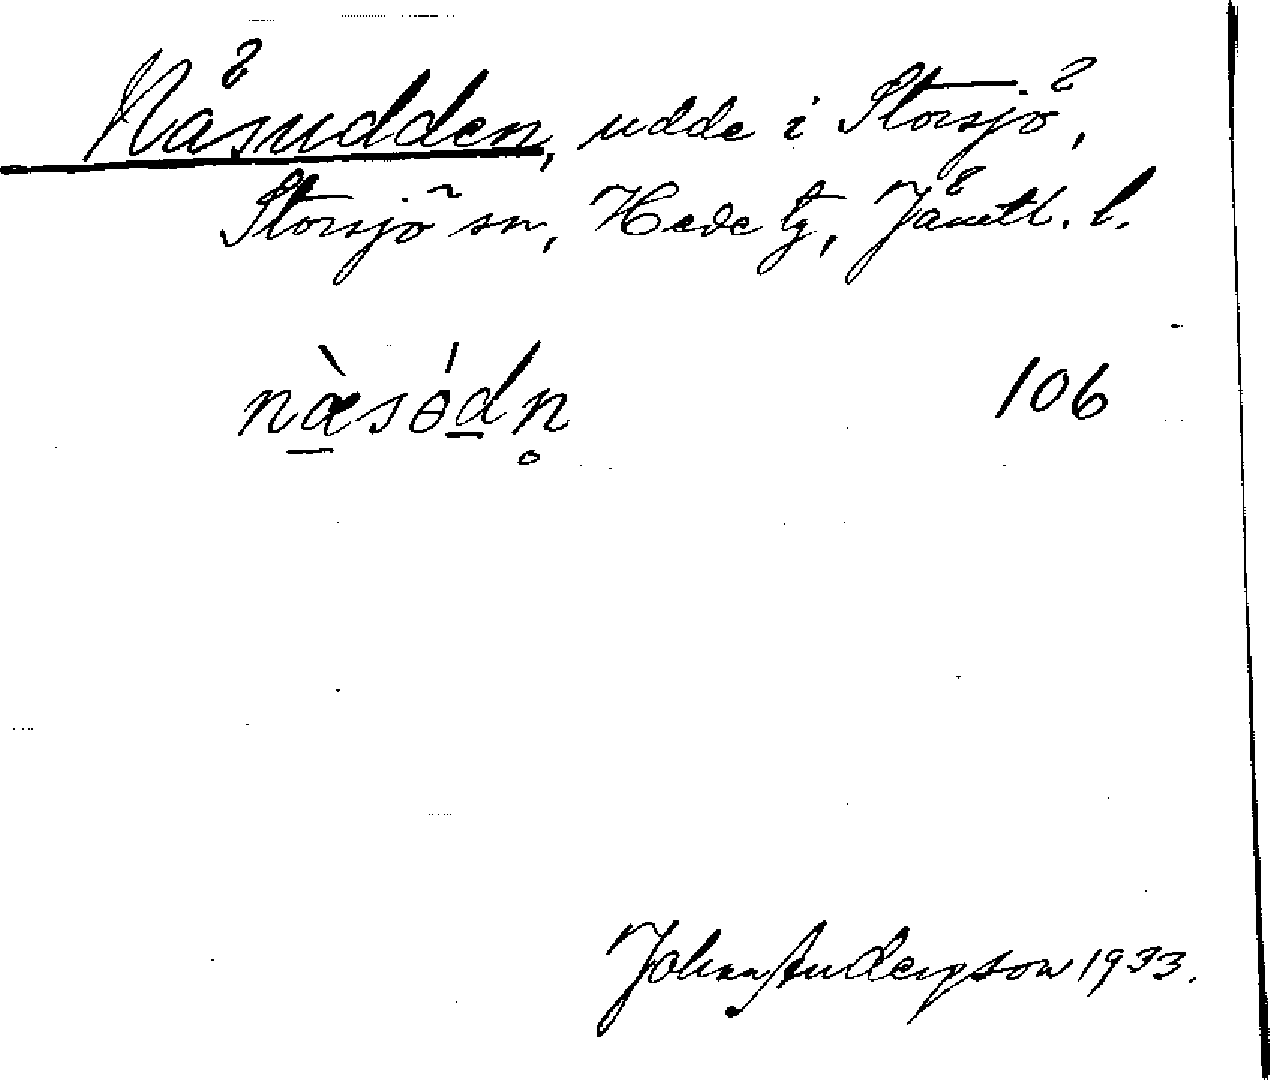 Näsudden, udde i Storsjö,
Storsjö sn, Hede tg, Jämtl. l.
næ̀sɵ́dn̥ 106
Johan Anderson 1933.